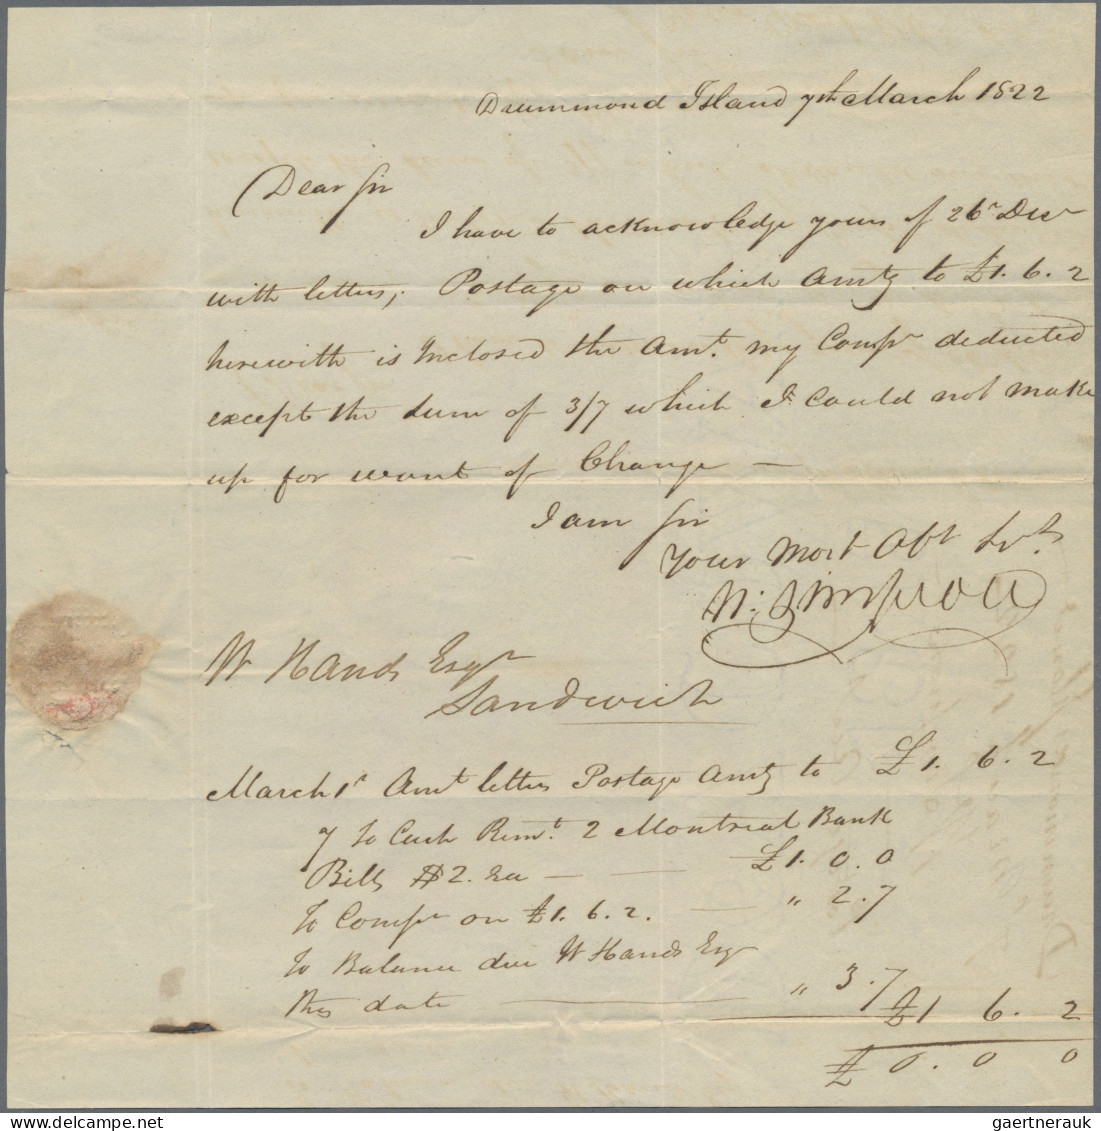 Drummond Island 7th March 1822
Dear Sir
I have to acknowledge yours of 26r Decr
with letters, Postage on which Amtg to £1. 6. 2
herewith is Inclosed the Amt. my Compn deducted
except the sum of 3/7 which I could not make
up for want of Change —
I am Sir
Your Most Obt Svt.
W: Simpson
W Hands Esqr
Sandwich
March 1r Amt letters Postage Amtg to £1. 6. 2
7 To Cash Remt. 2 Montreal Bank
Bills $2. Ea — — £1. 0. 0
To Compn on £1. 6. 2. — " 2.7
To Balance due W Hands Esqr
this date — " 3.7
£1 6. 2
£ 0. 0 0
gaertnerauk